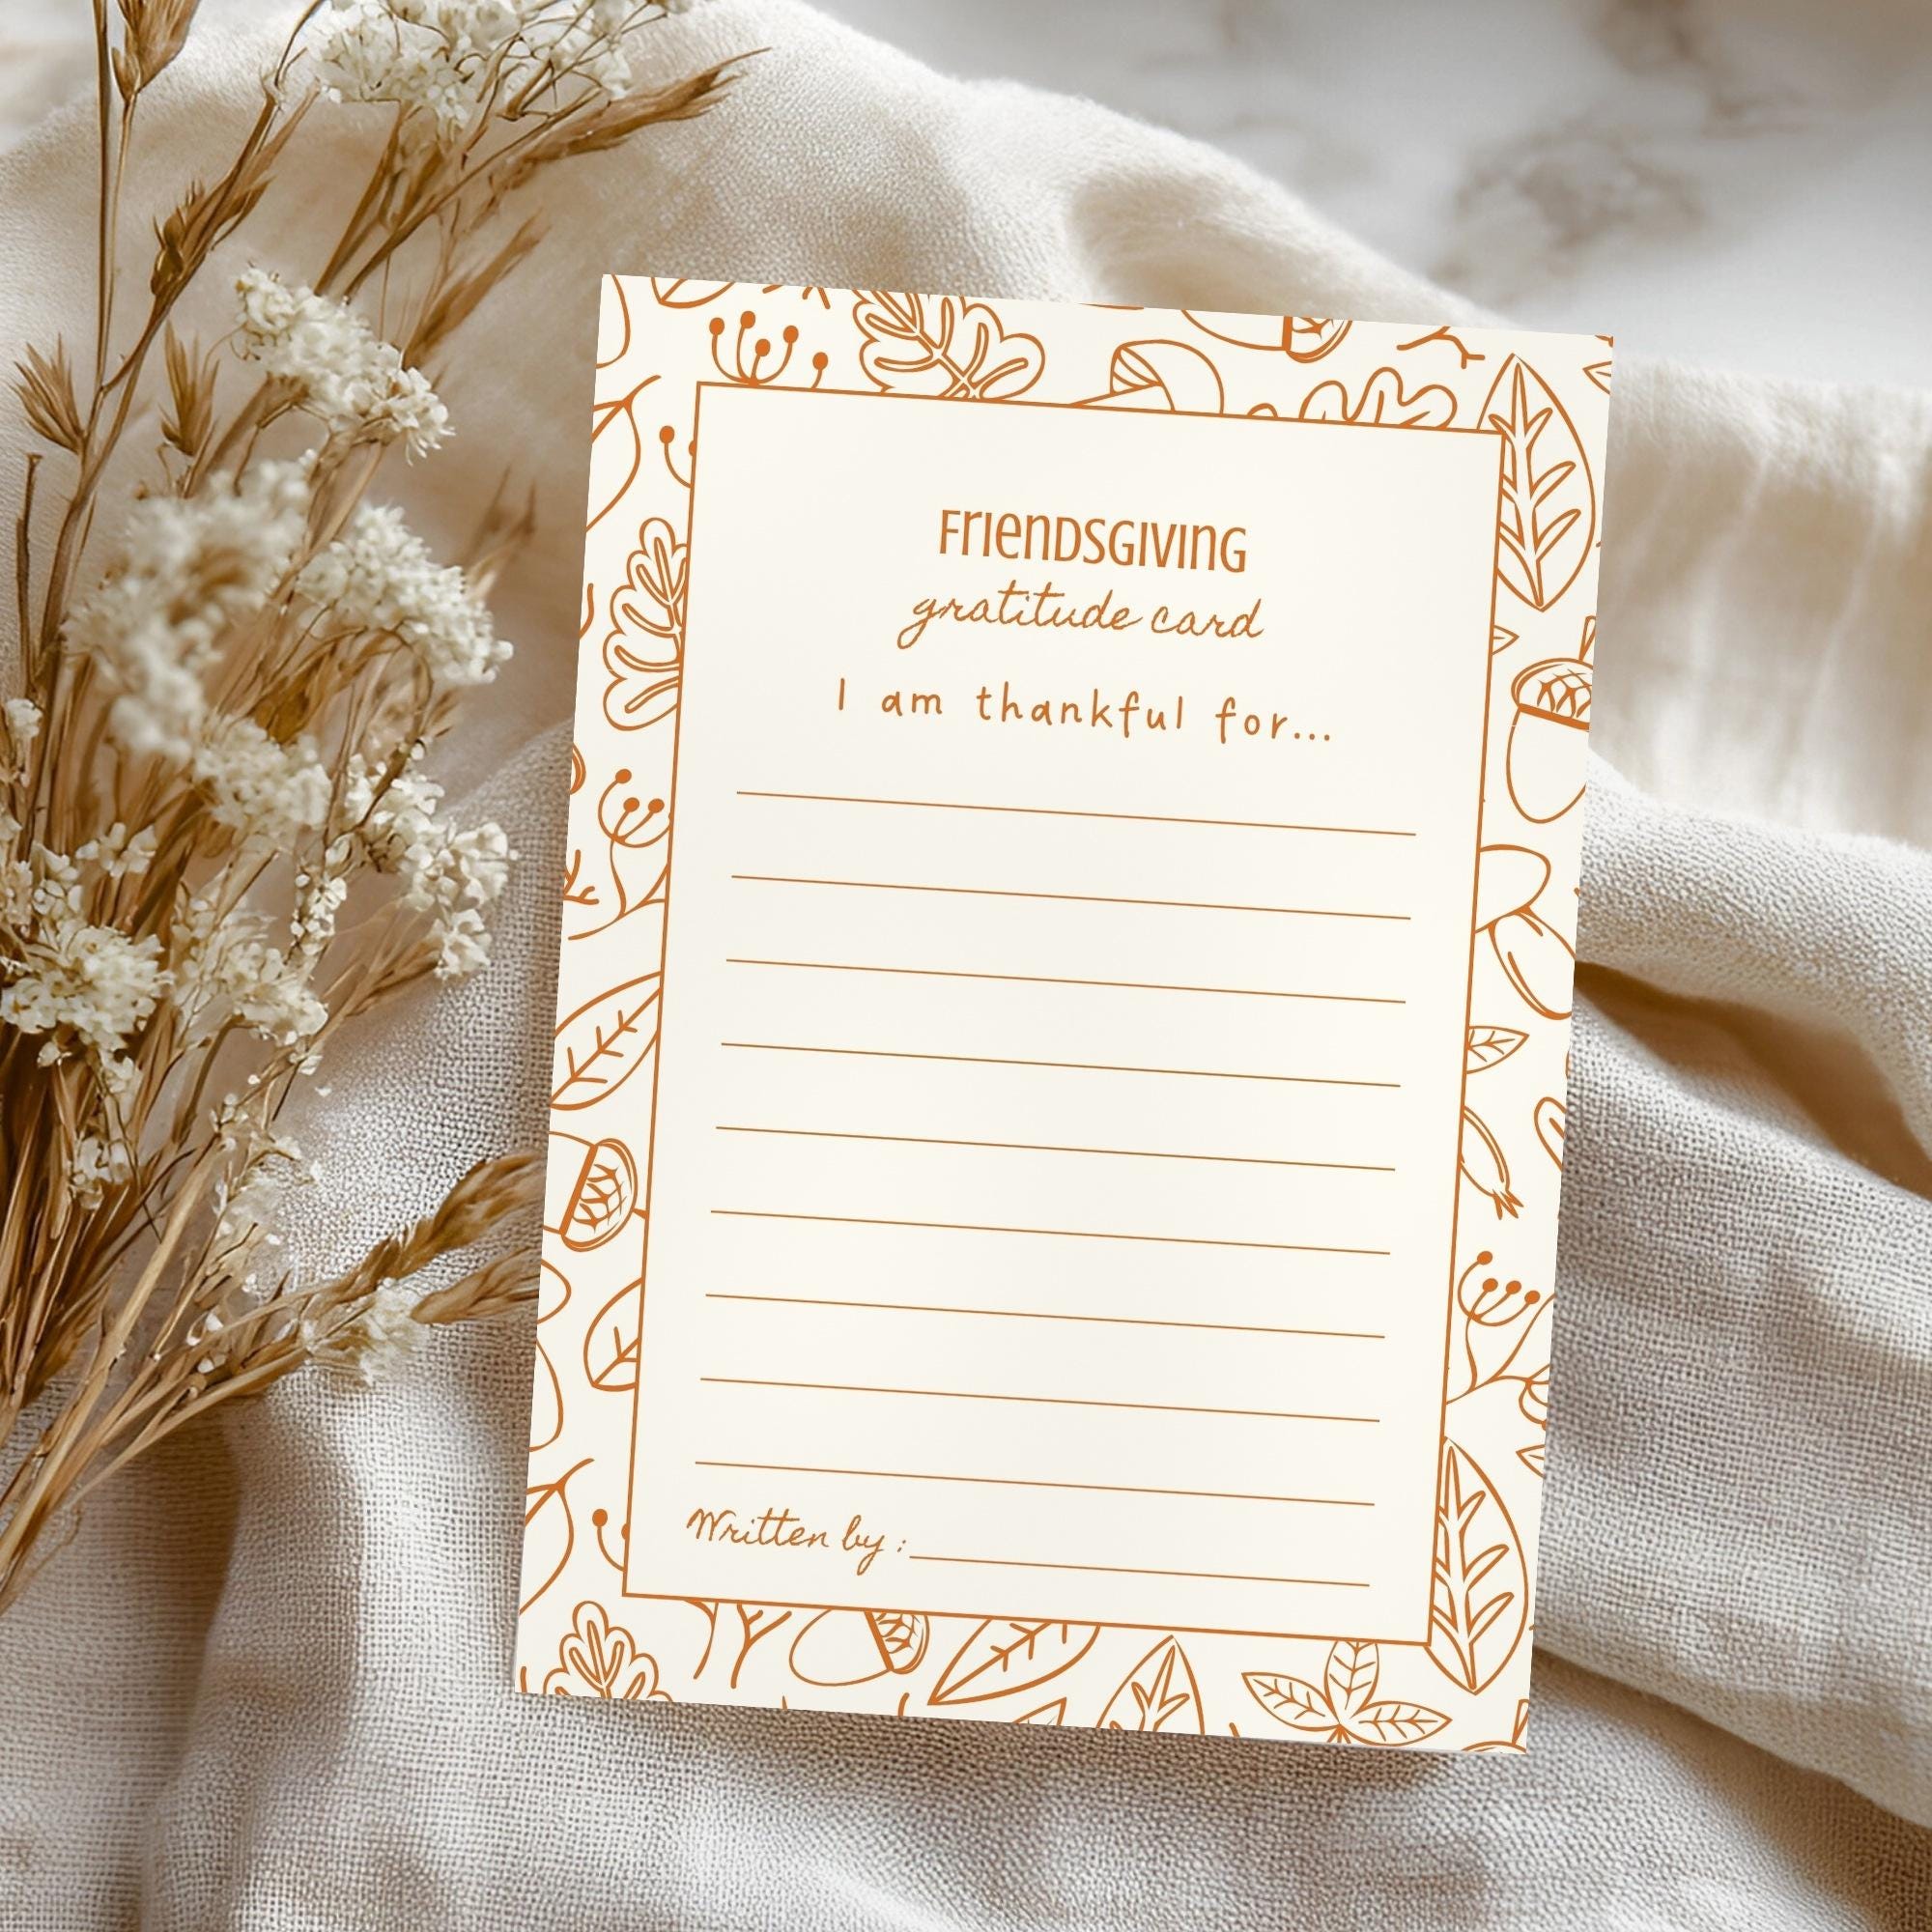 FRIENDSGIVING
gratitude card
I am thankful for...
Written by :